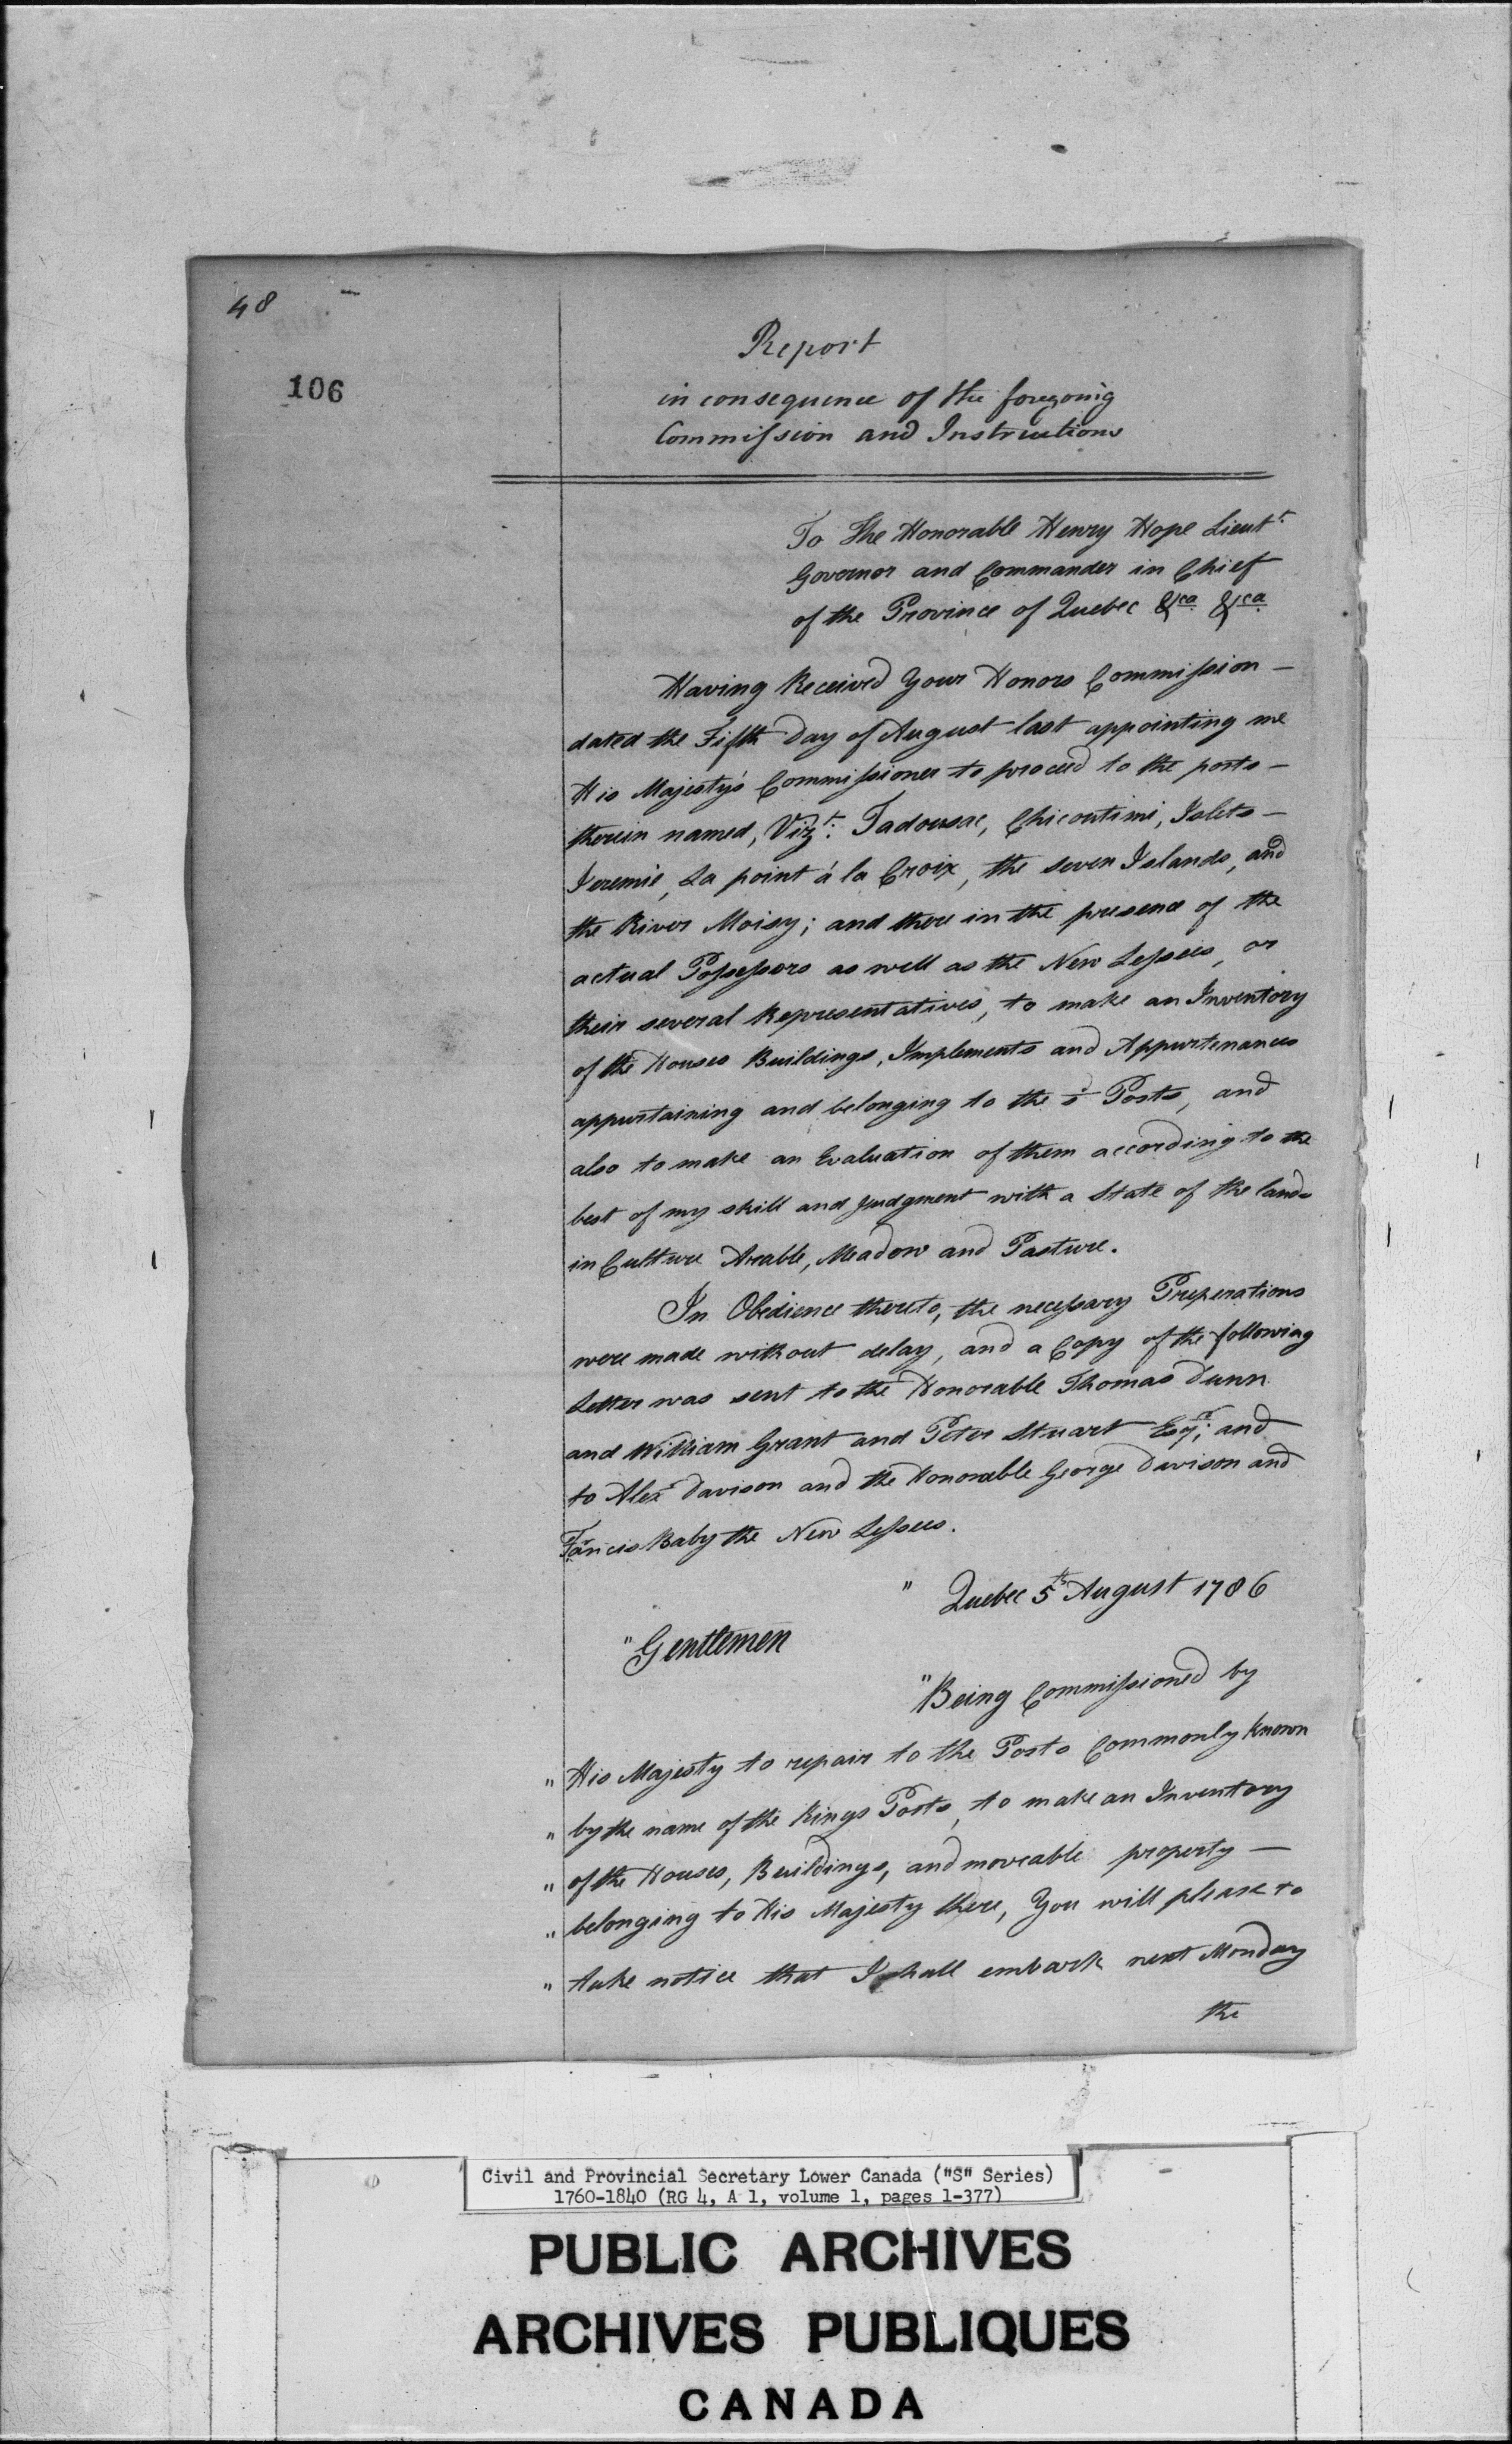 48
106
Report
in consequence of the foregoing
Commission and Instructions
To The Honorable Henry Hope Lieutt.
Governor and Commander in Chief
of the Province of Quebec &ca &ca
Having Received Your Honors Commission —
dated the Fifth Day of August last appointing me
His Majesty's Commissioner to proceed to the posts —
therein named, Vizt. Tadousac, Chicoutimi, Islets —
Jeremie, La point á la Croix, the seven Islands, and
the River Moisy; and there in the presence of the
actual Possessors as well as the New Lessees, or
their several Representatives, to make an Inventory
of the Houses Buildings, Implements and Appurtenances
appurtaining and belonging to the sd Posts, and
also to make an Evaluation of them according to the
best of my skill and judgment with a State of the lands
in Culture Arable, Meadow and Pasture.
In Obedience thereto, the necessary Preperations
were made without delay, and a Copy of the following
Letter was sent to the Honorable Thomas Dunn
and William Grant and Peter Stuart Esqr; and
to Alexr Davison and the Honorable George Davison and
Francis Baby the New Lessees.
" Quebec 5th August 1786
"Gentlemen
"Being Commissioned by
" His Majesty to repair to the Posts Commonly known
" by the name of the Kings Posts, to make an Inventory
" of the Houses, Buildings, and moveable property —
" belonging to His Majesty there, You will please to
" take notice that I shall embark next Monday
the
Civil and Provincial Secretary Lower Canada ("S" Series)
1760-1840 (RG 4, A 1, volume 1, pages 1-377)
PUBLIC ARCHIVES
ARCHIVES PUBLIQUES
CANADA